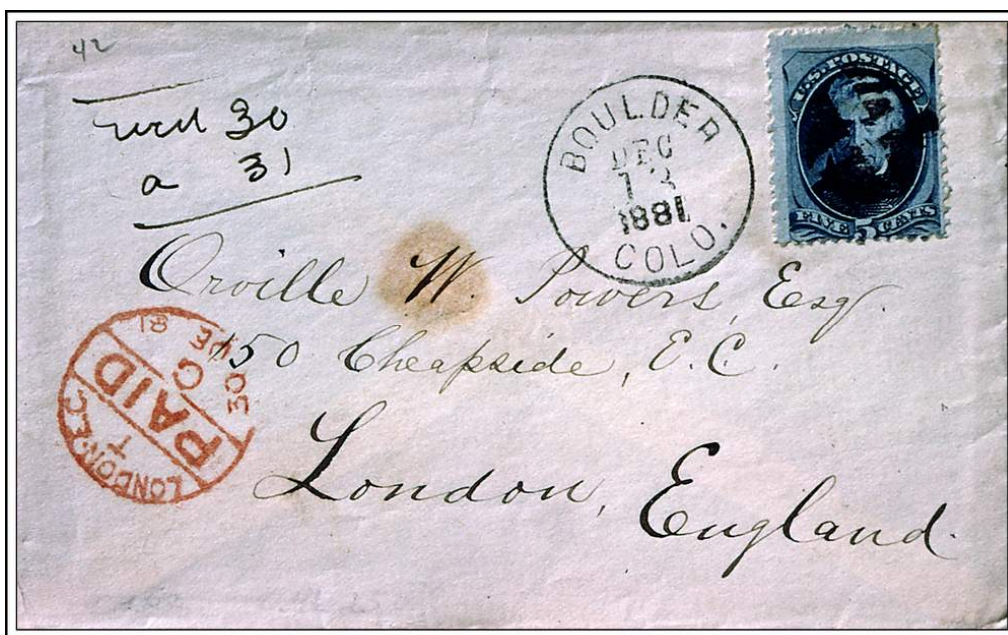 42
recd 30
a 31
BOULDER
DEC
13
1881
COLO.
U.S. POSTAGE
FIVE 5 CENTS
Orville W. Powers, Esq.
150 Cheapside, E.C.
London, England.
LONDON·E.C
T
PAID
C
30 DE 81